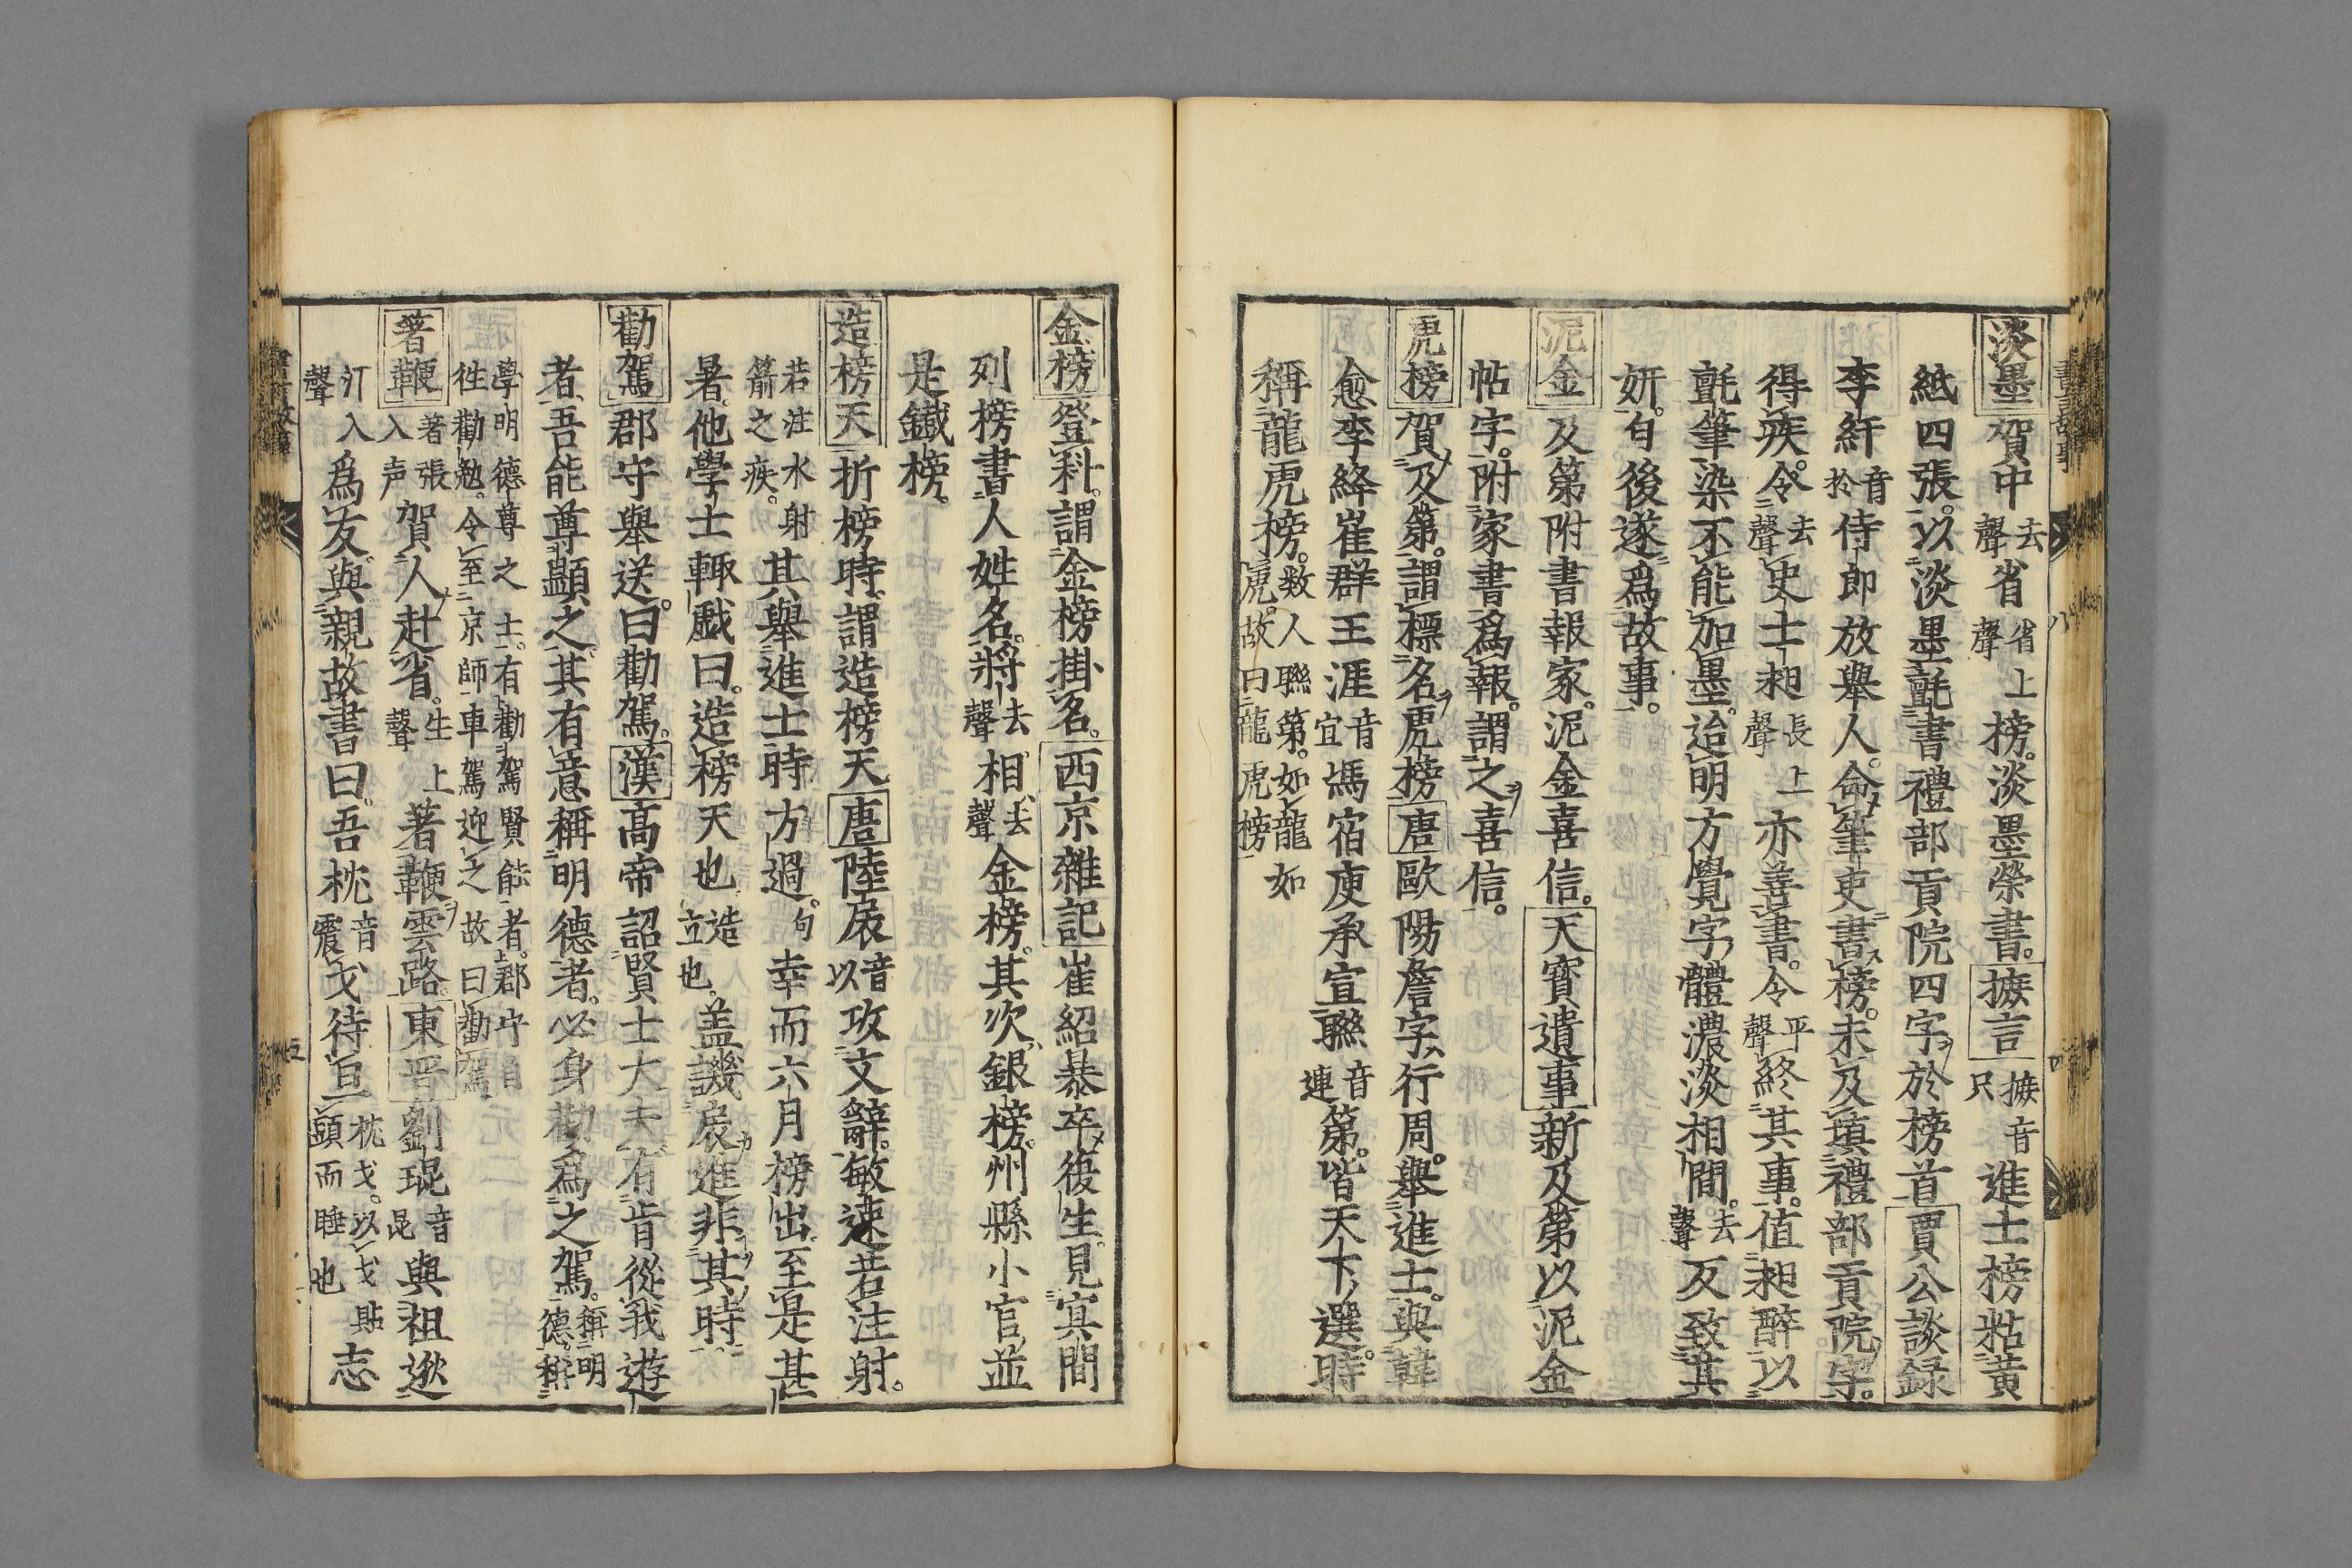 淡墨賀中去聲省省上聲榜。淡墨榮書。摭言摭音只進士榜粘黃
紙四張。以淡墨氈書禮部貢院四字於榜首賈公談録
李紆音於侍郎放舉人。命筆吏書榜。未及塡禮部貢院字。
得疾。令去聲史士昶長上聲亦善書。令平聲終其事。値昶醉以
氈筆染不能加墨。迨明方覺字體濃淡相間。去聲反致其
妍。自後遂爲故事。
泥金及第附書報家。泥金喜信。天寶遺事新及第以泥金
帖字。附家書爲報。謂之喜信。
虎榜賀及第。謂標名虎榜唐歐陽詹字行周。舉進士。與韓
愈李絳崔群王涯音宜馮宿庾承宣聯音連第。皆天下選。時
稱龍虎榜。数人聯第。如龍如虎。故曰龍虎榜
金榜登科。謂金榜掛名。西京雜記崔紹暴卒後生。見冥間
列榜書人姓名。將去聲相去聲金榜。其次銀榜。州縣小官並
是鐵榜。
造榜天折榜時。謂造榜天唐陸扆音以攻文辭。敏速若注射。
若注水射箭之疾。其舉進士時方過。句幸而六月榜出。至是甚
暑。他學士輒戲曰。造榜天也造立也。盖譏扆進非其時
勸駕郡守舉送。曰勸駕。漢高帝詔賢士大夫有肯從我遊
者。吾能尊顯之。其有意稱明德者。必身勸爲之駕。稱明德。稱
學明德尊之士。有勸駕賢能者。郡守自徃勸勉。令至京師車駕迎之故曰勸駕
著鞭著張入声賀人赴省。生上聲著鞭雲路。東晋劉琨音昆與祖逖
汀入聲爲友。與親故書曰。吾枕音震戈待旦枕戈。以戈貼頭而睡也志
書言故事
八
四
五